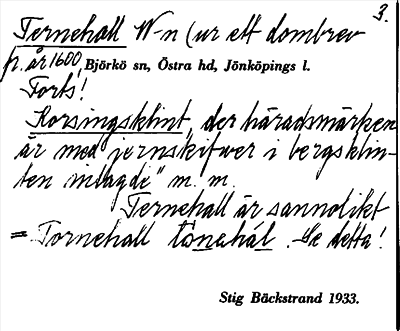 3.
Ternehall W-n (ur ett dombrev
fr. år 1600, Björkö sn, Östra hd, Jönköpings l.
Forts!
Korsingsklint "der häradsmärken
är med jernskifwer i bergsklin-
ten inlagde" m. m.
Ternehall är sannolikt
= Tornehall tònahál. Se detta!
Stig Bäckstrand 1933.